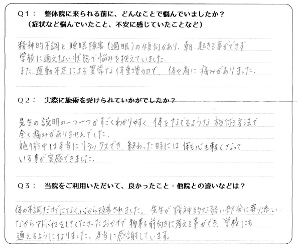 Q1： 整体院に来られる前に、どんなことで悩んでいましたか？
（症状など悩んでいたこと、不安に感じていたことなど）
精神的不調と睡眠障害（過眠）の傾向があり、朝起き事ができず
学校に通えない状態で悩みを抱えていました。
また、運動不足による異常な体重増加で、体や肩に痛みがありました。
Q2： 実際に施術を受けられていかがでしたか？
先生の説明の一つ一つがすごくわかりやすく、体をなでるような施術方法で
全く痛みがありませんでした。
施術中は本当にリラックスでき、終わった時には体も心も軽くなって
いる事が実感できました。
Q3： 当院をご利用いただいて、良かったこと・他院との違いなどは？
体の不調だけでなく、心から改善されました。先生が精神的な弱い部分に寄り添い
ながらアドバイスをしてくださったおかげで物事を前向きに捉える事ができ、学校にも
通えるようになりました。本当に感謝しています。